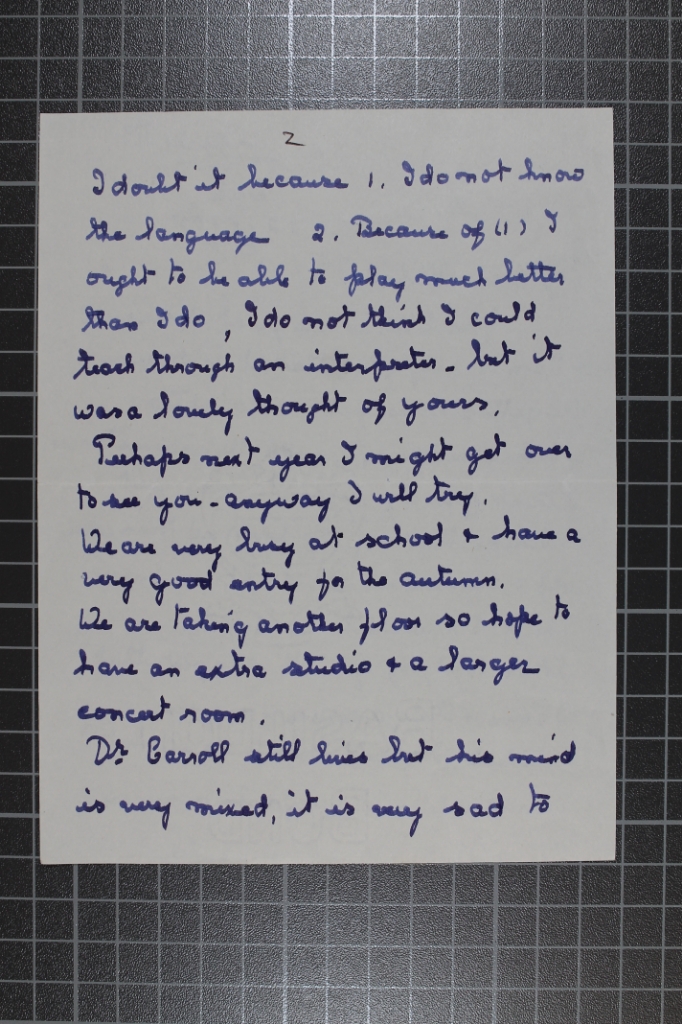 2
I doubt it because 1. I do not know
the language 2. Because of (1) I
ought to be able to play much better
than I do, I do not think I could
teach through an interpreter - but it
was a lovely thought of yours.
Perhaps next year I might get over
to see you - anyway I will try.
We are very busy at school & have a
very good entry for the autumn.
We are taking another floor so hope to
have an extra studio & a larger
concert room.
Dr Carroll still lives but his mind
is very mixed, it is very sad to